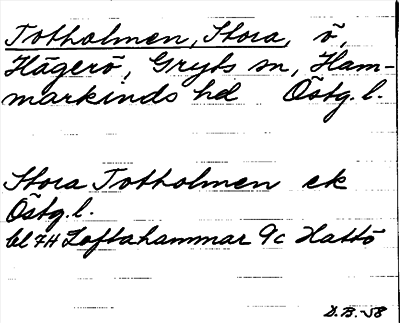 Totholmen, Stora, ö,
Hägerö, Gryts sn, Ham-
markinds hd Östg. l.
Stora Totholmen ek
Östg. l.
bl 7H Loftahammar 9c Hattö
D.B.-58